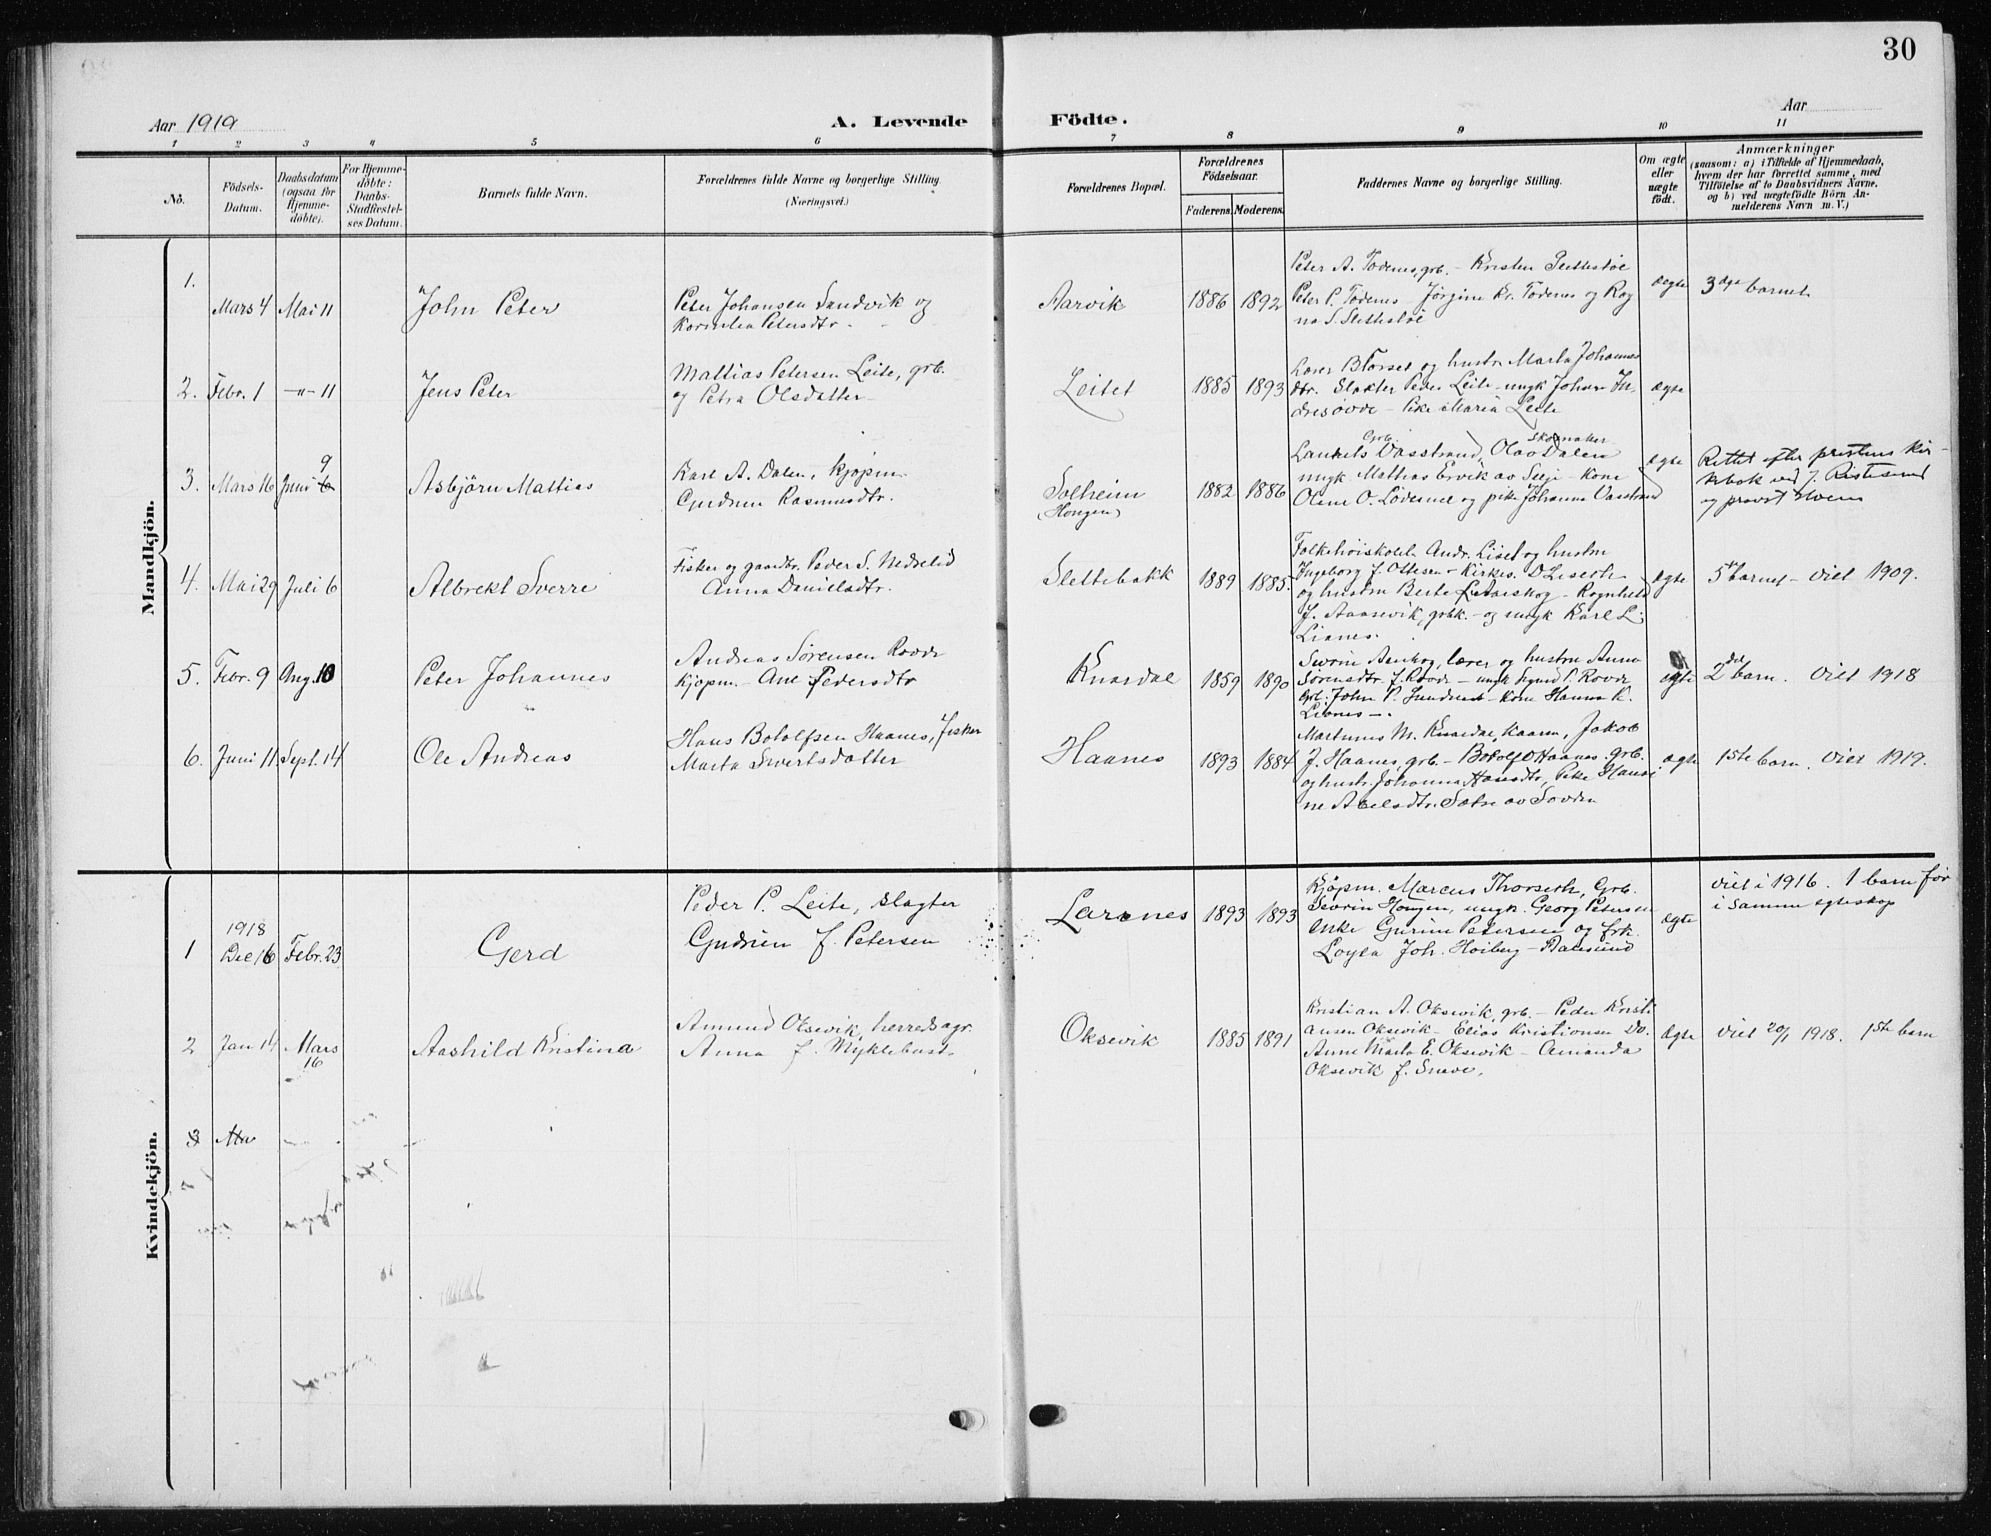 30
Aar 1919
A. Levende
Födte.
Aar
1 2 3 4 5 6 7 8 9 10 11
No.
Födsels-
Datum.
Daabsdatum
(ogsaa for
Hjemme-
döbte).
For Hjemme-
döbte:
Daabs-
Stadfæstel-
ses Datum.
Barnets fulde Navn.
Forældrenes fulde Navne og borgerlige Stilling.
(Næringsvei.)
Forældrenes Bopæl.
Forældrenes
Födselsaar.
Faderens. Moderens.
Faddernes Navne og borgerlige Stilling.
Om ægte
eller
uægte
födt.
Anmærkninger
(saasom: a) i Tilfælde af Hjemmedaab,
hvem der har forrettet samme, med
Tilföielse af to Daabsvidners Navne.
og b) ved uægtefödte Börn An-
melderens Navn m. V.)
Mandkjön.
1.
Mars 4 Mai 11
John Peter
Peter Johansen Sandvik og
Kornelia Petersdtr.
Aarvik
1886 1892
Peter A. Todenes, grb. - Kristen Slettestøl
Peter P. Todenes - Jørgine Kr. Todenes og Rag
na S. Slettestøl
ægte
3die barnet
2. Febr. 1 -"- 11
Jens Peter
Mattias Petersen Leite, grb.
og Petra Olsdatter
Leitet
1885 1893
Lærer B Torset og hustr. Marta Johannes
dtr. Slakter Peder Leite - ungk Johan
Pike Maria Leite
ægte
3. Mars 16 Juni 6 9
Asbjörn Mattias
Karl A. Dalen, kjøpm.
Gudrun Rasmusdtr.
Solheim
(Hongen)
1882 1886
Grb. Skomaker
Vasstrand, Olav Dalen
ungk Mathias Ervik av Selje - kone
Olene O. Lødesnel og pike Johanna Vasstrand
ægte
Rettet efter prestens kir-
kebok ved J.
og provst
4. Mai 29 Juli 6
Albrekt Sverre
Fisker og gaardbr. Peder S. Nedrelid
Anna Danielsdtr.
Slettebakk
1889 1885.
Folkehöiskolel. Andr. Liset og hustru
Ingeborg f. Ottesen - Kirkes. D Liseth
og hustru Berte - Ragnhild
J. Aaasevik, grbk. - og ungk Karl L
Lianes.
ægte
5te barnet - viet 1909.
5. Febr. 9 Aug. 10
Peter Johannes
Andreas Sørensen Rovde
kjøpm. - Ane Pedersdtr
Knardal
1859 1890
Sevrin Aaskog, lærer og hustru Anna
Sørensdtr. f. Rovde - ungk Sigurd S. Rovde
Grb. John P. - kone Hanna K.
Lianes -.
ægte
2det barn. Viet 1918
6. Juni 11 Sept. 14
Ole Andreas
Hans Botolfsen Haanes, fisker
Marta Sivertsdatter
Haanes
1893 1884
Martinus M. Knardal, kaarm, Jakob
J. Haanes, grb. - Botolf O Haanes. grb.
og hustr. Johanna Hansdtr, Pike Hansi
ne Abelsdtr. Sætre av Sovden
ægte
1ste barn. Viet 1919.
Kvindekjön.
1
1918
Dec 16 Febr. 23
Gerd
Peder P. Leite, slagter
Gudrun f. Petersen
Larsnes
1893 1893
Kjøpm. Marcus Thorseth, Grb.
Sevrin Hongen, ungk. Georg Petersen
enke Gurine Petersen og frk.
Joh. Hoiberg - Aalesund
ægte
viet i 1916. 1 barn før
i samme egteskap
2 Jan 14 Mars
16
Aashild Kristina
Amund Oksevik, herredsagr.
Anna f. Myklebust.
Oksevik
1885 1891
Kristian A. Oksevik, grb. - Peder Kristi
ansen Oksevik - Elias Kristiansen Do.
Anne Marta E. Oksevik - Amanda
Oksevik f. Sneve.
ægte
viet 20/1 1918. 1ste barn
3